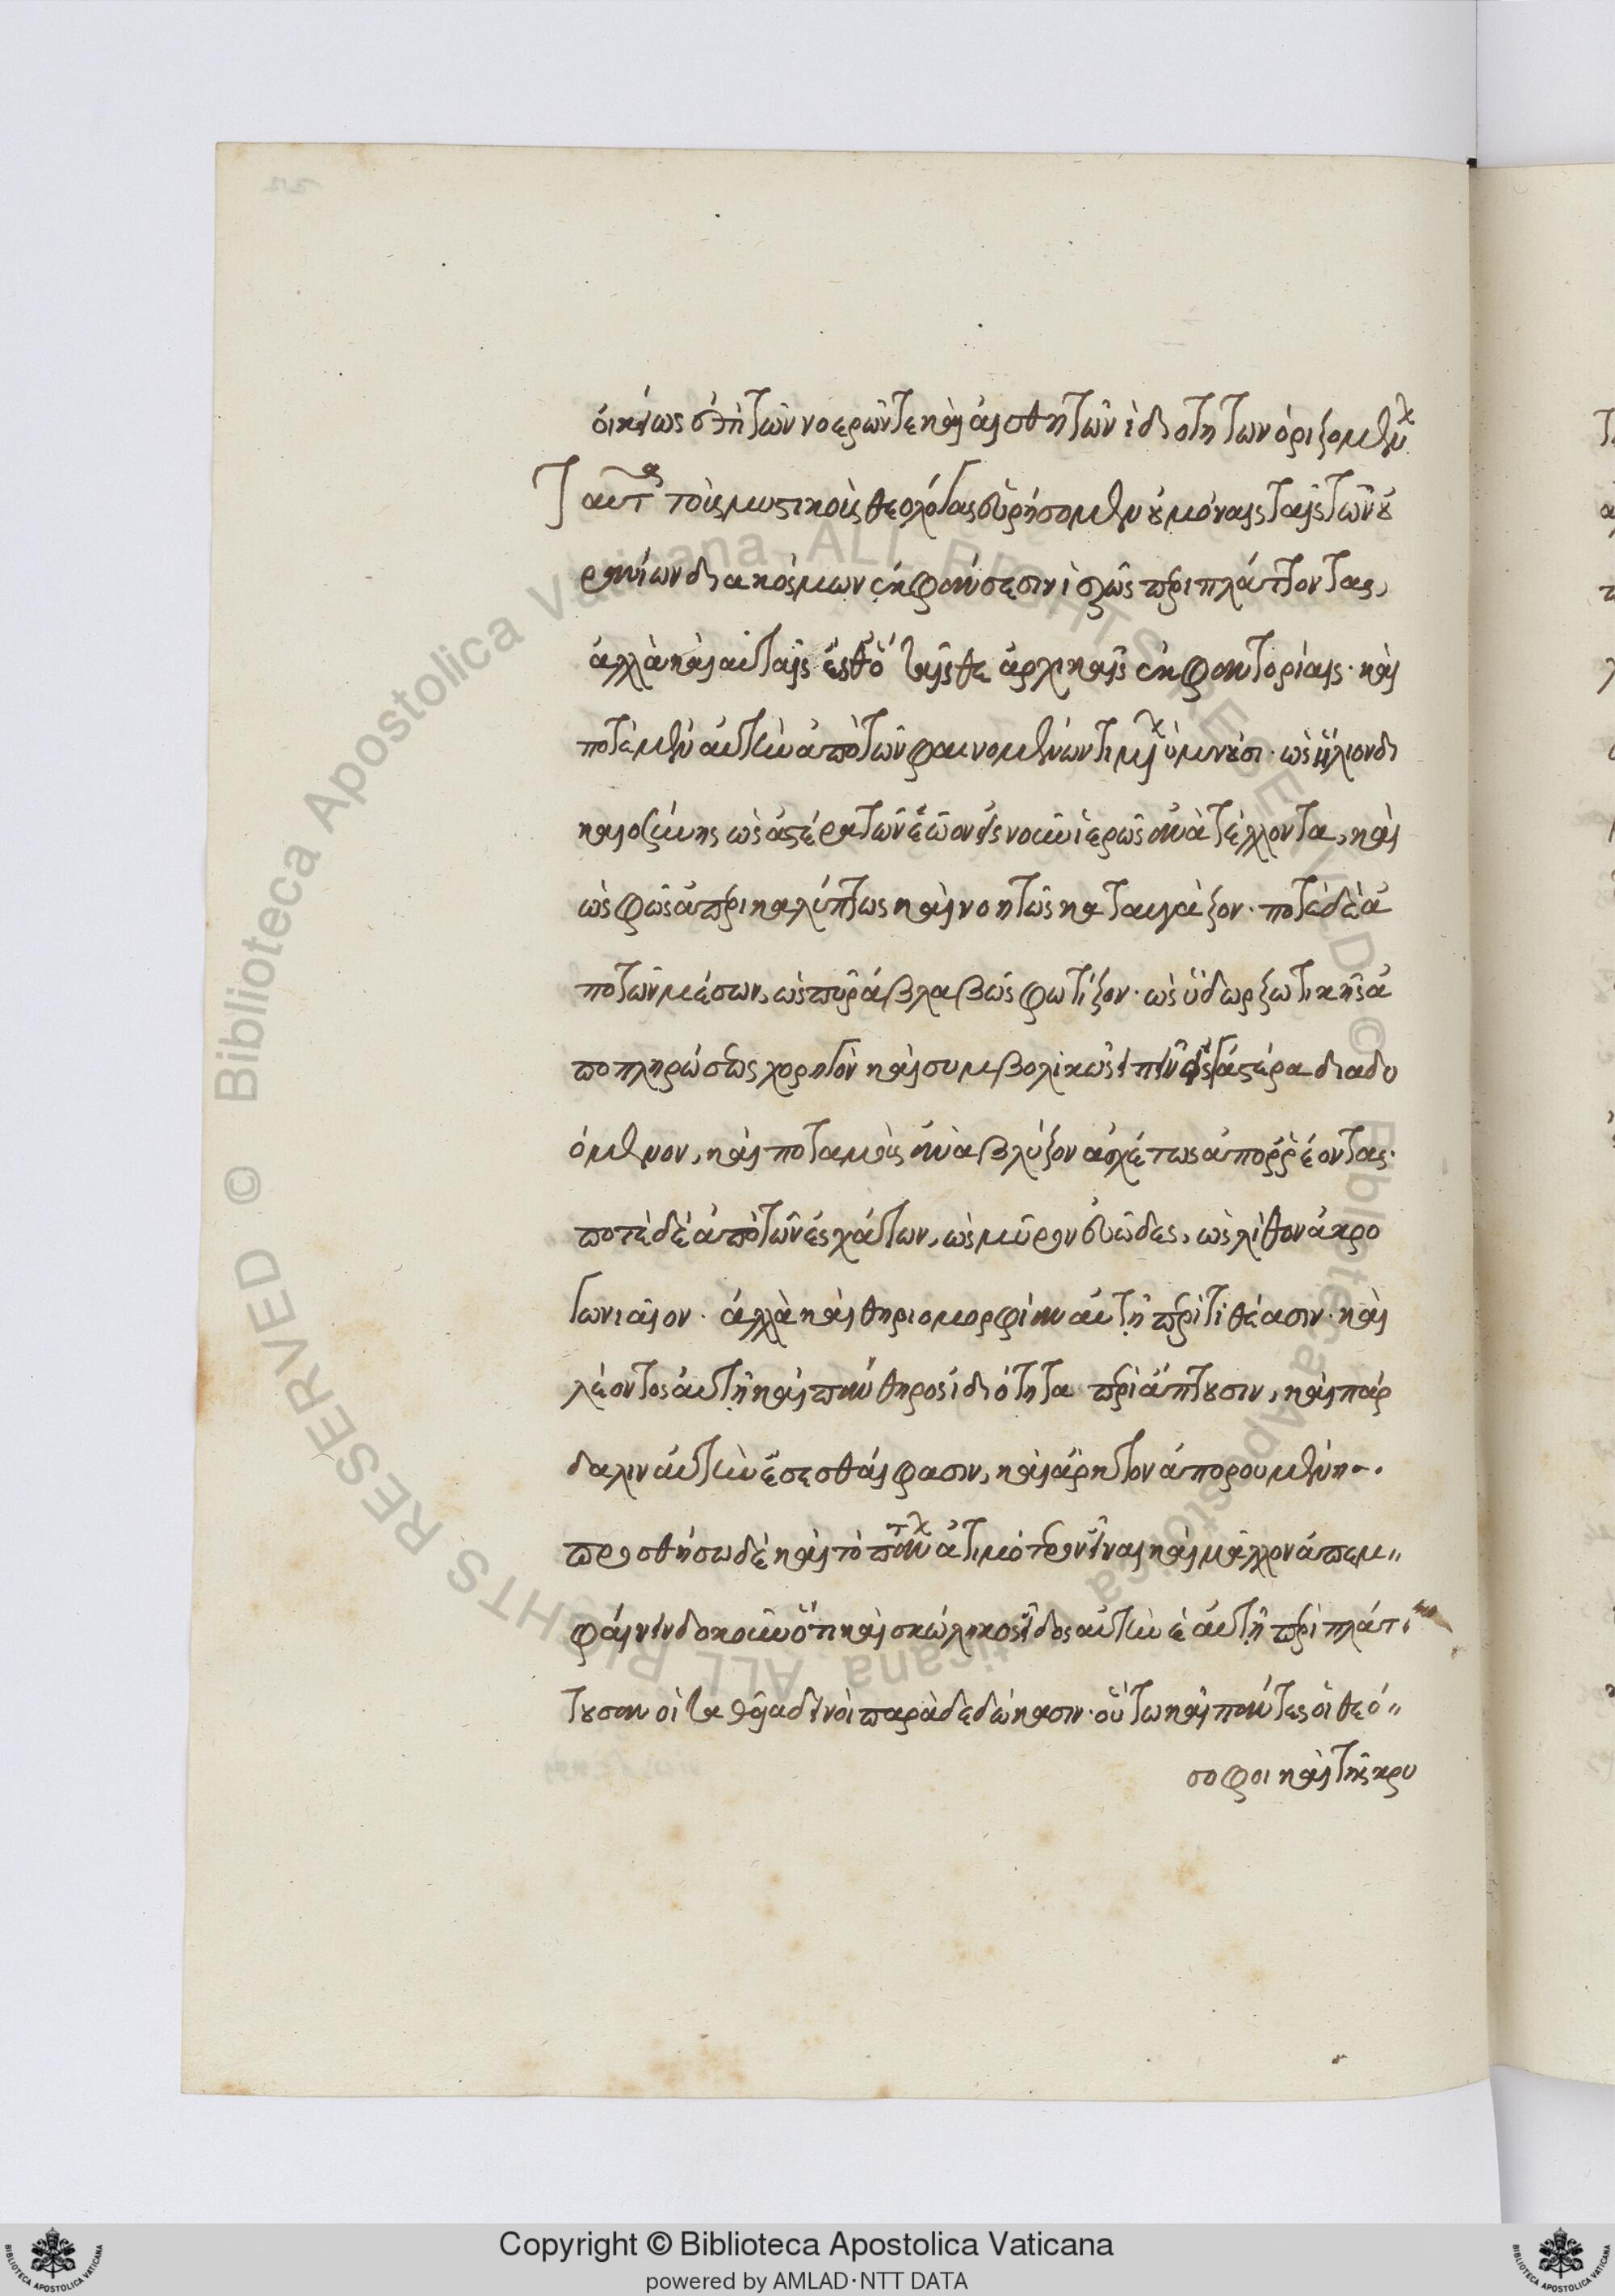 οἰκείως ἐπὶ τῶν νοερῶν τε καὶ αἰσθητῶν ἰδιοτήτων ὁριζομένων
Ταῦτα τοὺς μυστικοὺς θεολόγους εὑρήσομεν οὐ μόναις ταῖς τῶν οὐ
ρανίων διακόσμων ἐκφάνσεσιν ἱερῶς περιπλάττοντας,
ἀλλὰ καὶ αὐταῖς ἔσθ' ὅτε ταῖς θεαρχικαῖς ἐκφαντορίαις· καὶ
ποτὲ μὲν αὐτὴν ἀπὸ τῶν φαινομένων τιμίων ὑμνοῦσι· ὡς ἥλιον δι
καιοσύνης ὡς ἀστέρα τὸν ἑῷον εἰς νοῦν ἱερῶς ἀνατέλλοντα, καὶ
ὡς φῶς ἀπερικαλύπτως καὶ νοητῶς καταυγάζον· ποτὲ δὲ ἀ
πὸ τῶν μέσων, ὡς πῦρ ἀβλαβῶς φωτίζον· ὡς ὕδωρ ζωτικῆς ἀ
ποπληρώσεως χορηγὸν καὶ συμβολικῶς εἰπεῖν εἰς γαστέρα διαδυ
όμενον, καὶ ποταμοὺς ἀναβλύζον ἀσχέτως ἀπορρέοντας·
ποτὲ δὲ ἀπὸ τῶν ἐσχάτων, ὡς μύρον εὐῶδες, ὡς λίθον ἀκρο
γωνιαῖον· ἀλλὰ καὶ θηριομορφίαν αὐτῇ περιτιθέασιν· καὶ
λέοντος αὐτῇ καὶ πάνθηρος ἰδιότητα περιάπτουσιν, καὶ πάρ
δαλιν αὐτὴν ἔσεσθαι φασιν, καὶ ἄρκτον ἀπορουμένην.
προσθήσω δὲ καὶ τὸ πάντων ἀτιμότερον εἶναι καὶ μᾶλλον ἀπεμ〃
φαίνειν δοκοῦν ὅτι καὶ σκώληκος εἶδος αὐτὴν ἑαυτῇ περιπλάτ
τουσαν οἱ τὰ θεῖα δεινοὶ παραδεδώκασιν· οὕτω καὶ πάντες οἱ θεό〃
σοφοι καὶ τῆς κρυ